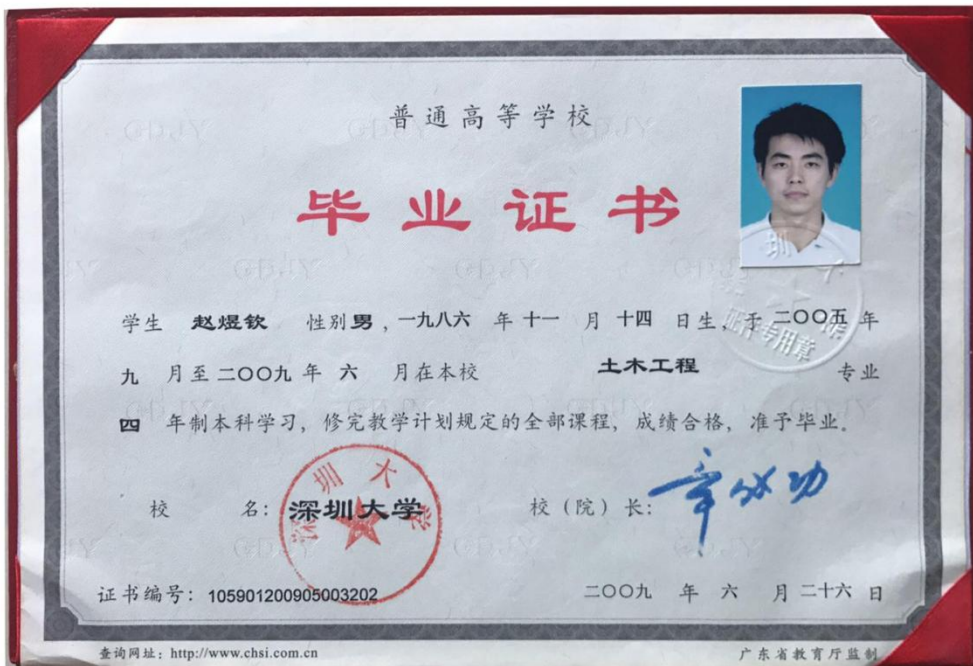 普通高等学校
毕业证书
学生 赵煜钦 性别男，一九八六 年 十一 月 十四 日生，于 二〇〇五 年
九 月至 二〇〇九 年 六 月在本校 土木工程 专业
四 年制本科学习，修完教学计划规定的全部课程，成绩合格，准予毕业。
校 名：深圳大学 校（院）长：章必功
深圳大学
证书编号：105901200905003202 二〇〇九 年 六 月 二十六 日
查询网址：http://www.chsi.com.cn 广东省教育厅监制
证件专用章
GDJY